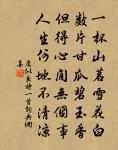 一杯山茗雪花白
數片甘瓜碧玉香
但得心閒無個事
人生何地不清涼
虞似良詩一首